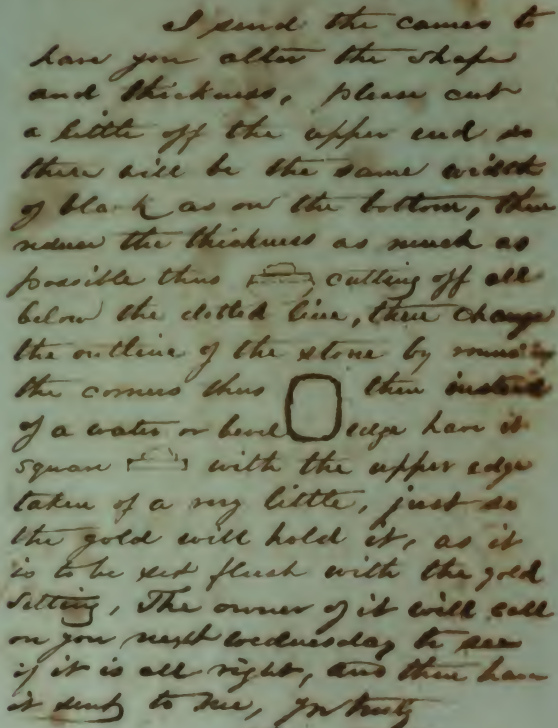 I send the cameo to
have you alter the shape
and thickness, please cut
a little off the upper end so
there will be the same width
of black as on the bottom, then
reduce the thickness as much as
possible thus cutting off all
below the dotted line, then change
the outline of the stone by rounding
the corners thus then instead
of a water or bevel edge have it
square with the upper edge
taken of a very little, just so
the gold will hold it, as it
is to be set flush with the gold
setting, The owner of it will call
on you next wednesday to see
if it is all right, and then have
it sent to me, yrs truly